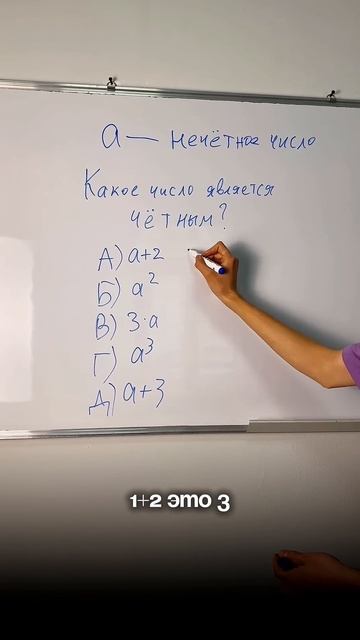 a — нечётное число
Какое число является
чётным?
А) a+2
Б) a²
В) 3·a
Г) a³
Д) a+3
1+2 это 3